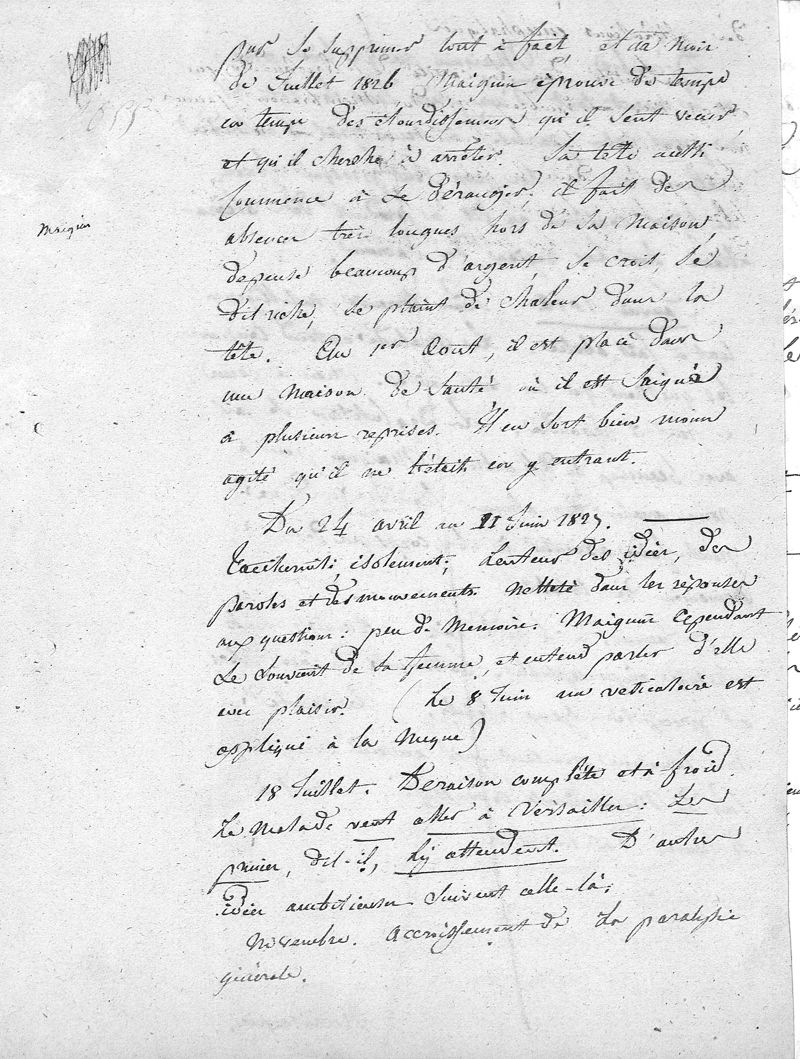 par se supprimer tout à fait, et du mois
de Juillet 1826 Maignin éprouve de temps
en temps des étourdissemens qu'il sent venir,
et qu'il cherche à arrêter. Sa tête aussi
commence à se déranger, il fait des
absences très longues hors de sa maison,
Maignin
dépense beaucoup d'argent, se croit, se
dit riche, se plaint de chaleur dans la
tête. Au 1er Aout, il est placé dans
une maison de santé où il est saigné
à plusieurs reprises. Il en sort bien moins
agité qu'il ne l'était en y entrant.
Du 24 avril au 11 Juin 1827.
Taciturnité, isolement; lenteur des idées, des
paroles et des mouvements. Netteté dans les réponses
aux questions: peu de mémoire. Maignin cependant
se souvient de sa femme, et entend parler d'elle
avec plaisir. (Le 8 Juin un vesicatoire est
appliqué à la nuque)
18 Juillet. Deraison complête et à froid.
Le malade veut aller à Versailles: Les
dit-il, l'y attendent. D'autres
idées ambitieuses suivent celle-là:
Novembre. Accroissement de la paralysie
générale.